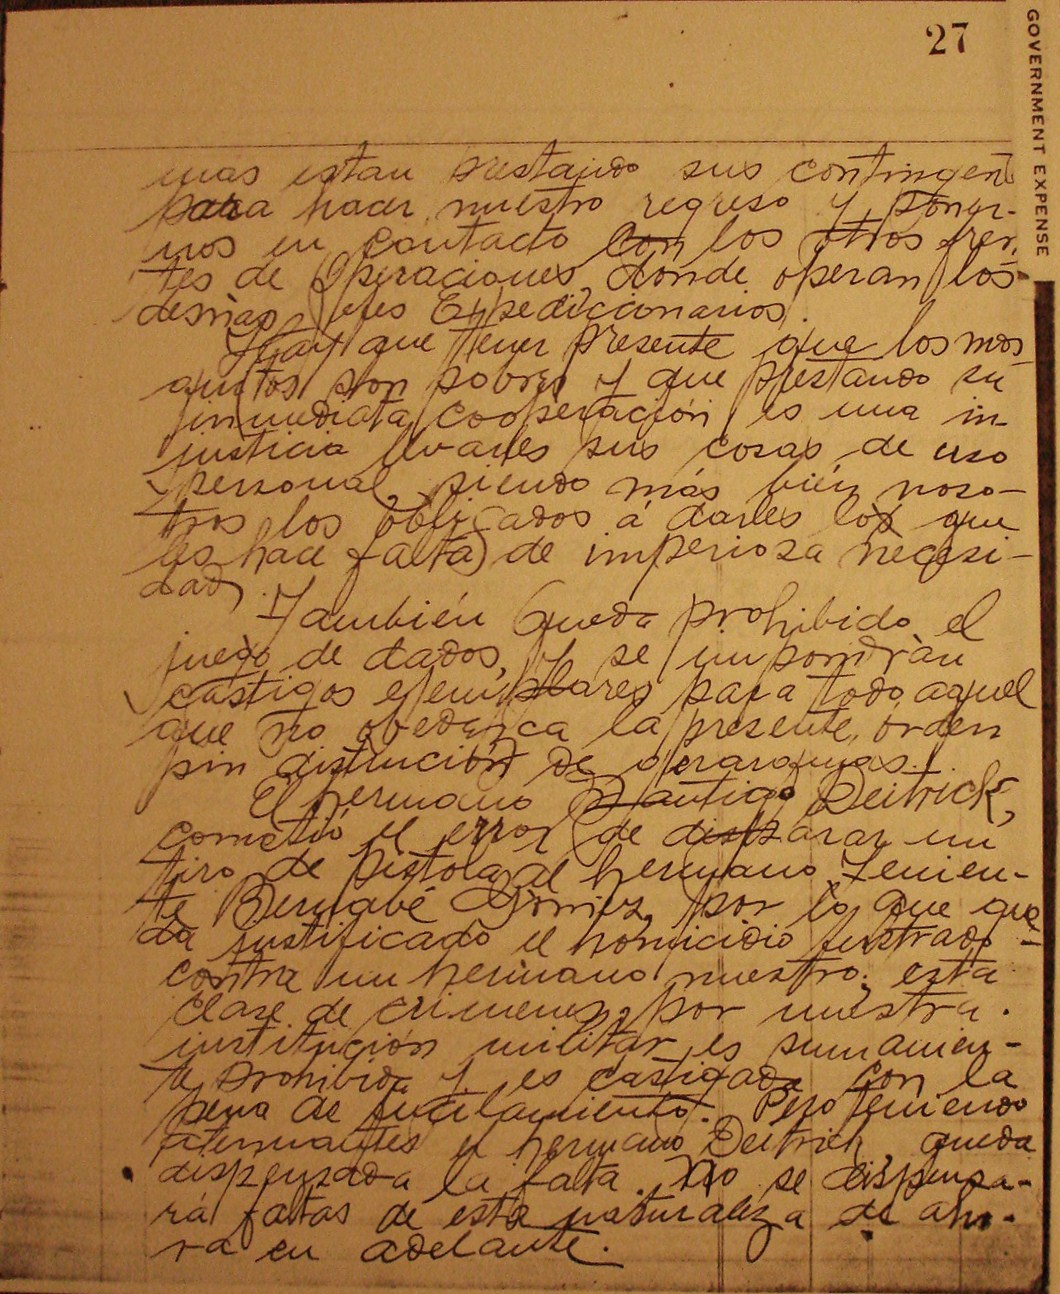 27
GOVERNMENT EXPENSE
mas estan prestando sus contingent
para hacer nuestro regreso y poner-
nos en contacto con los otros fren-
tes de Operaciones, donde operan los
desmás jefes Expediccionarios.
Hay que tener presente que los mos
quitos son pobres y que prestando su
inmediata cooperación es una in-
justicia llevarles sus cosas de uso
personal, siendo más bién noso-
tros los obligados á darles los que
les hace falta de imperiosa necesi-
dad,
También queda prohibido el
juego de dados, y se impondrán
castigos ejemplares para todo aquel
que no obedezca la presente órden
sin distinción de gerarquias.
El hermano Santiago Deitrick,
cometió el error de disparar un
tiro de pistola al hermano Tenien-
te Bernabé Gómez, por lo que que-
da justificado el homicidio frustrado
contra un hermano nuestro; esta
clase de crimenes, por nuestra
institución militar es sumamen-
te prohibida y es castigada con la
pena de fucilamiento. Pero teniendo
atenuantes el hermano Deitrich, queda
dispensada la falta. No se dispensa-
rá faltas de esta naturaleza de aho-
ra en adelante.